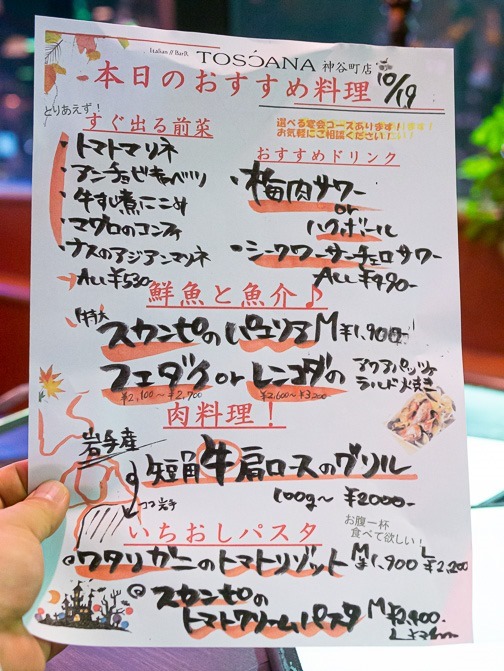 Italian // BarB.
TOSCANA 神谷町店
本日のおすすめ料理 10/19
とりあえず!
すぐ出る前菜
・トマトマリネ
・アンチョビキャベツ
・牛すじ煮こごめ
・マグロのコンフィ
・ナスのアジアンマリネ
ALL ¥530-
選べる宴会コースあります!
お気軽にご相談ください!
おすすめドリンク
・梅肉サワー
or
ハイボール
・シークワーサーチェロサワー
ALL ¥490-
鮮魚と魚介♪
特大
スカンピのパエリア M ¥1,900-
フエダイ or レンコダイの アクアパッツァ
ラルド焼き
¥2,100〜¥2,700
¥2,600〜¥3,200
肉料理!
岩手産
短角牛肩ロースのグリル
100g〜 ¥2000-
ココ岩手
いちおしパスタ
お腹一杯
食べて欲しい!
ワタリガニのトマトリゾット M ¥1,900 L ¥2,200
スカンピの
トマトクリームパスタ M
L